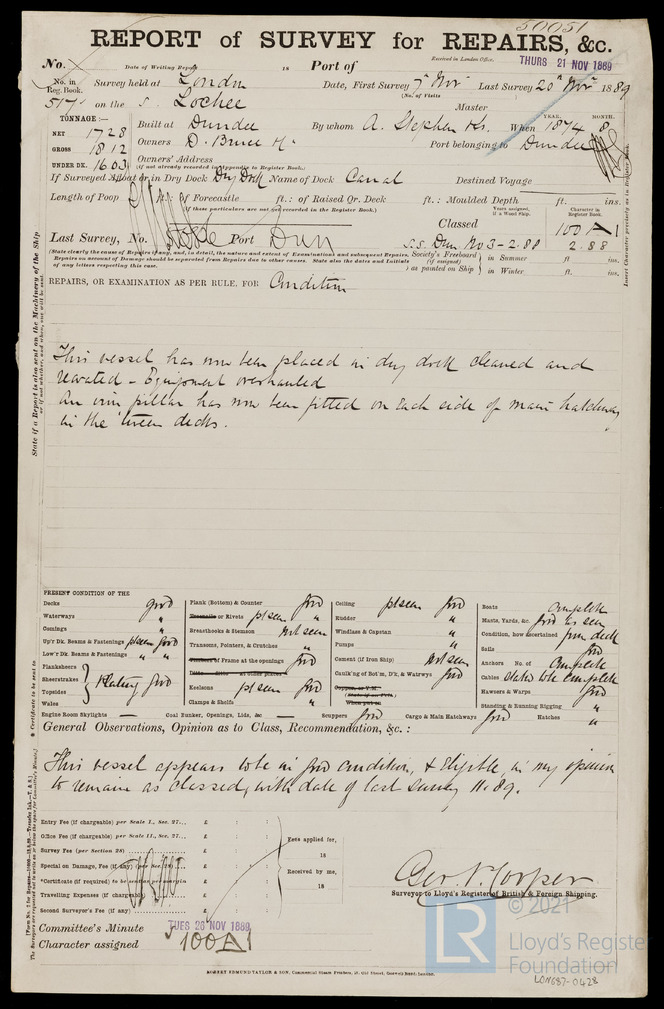 50051
REPORT OF SURVEY for REPAIRS, &c.
No. Date of Writing Report 18 Port of Received in London Office. THURS 21 NOV 1889
No. in Reg. Book. Survey held at London Date, First Survey 7th Nov Last Survey 20th Nov 1889
(No. of Visits
517 on the S. Lochee Master
TONNAGE:— YEAR. MONTH.
NET 1728 Built at Dundee By whom A. Stephen & Co. When 1874 8
GROSS 1812 Owners D. Bruce & Co Port belonging to Dundee
UNDER DK. 1603 Owners' Address
(if not already recorded in Appendix to Register Book.)
If Surveyed Afloat or in Dry Dock Dry Dock Name of Dock Canal Destined Voyage
Length of Poop ft.: of Forecastle ft.: of Raised Qr. Deck ft.: Moulded Depth ft. ins.
(If these particulars are not recorded in the Register Book.)
Classed Years assigned, if a Wood Ship. Character in Register Book.
100 A 1
Last Survey, No. Port Dun S.S. Dun. No 3-2.88 2.88
(State clearly the cause of Repairs if any, and, in detail, the nature and extent of Examinations and subsequent Repairs. Repairs on account of Damage should be separated from Repairs due to other causes. State also the dates and Initials of any letters respecting this case.
Society's Freeboard (if assigned) as painted on Ship in Summer ft. ins.
in Winter ft. ins.
REPAIRS, OR EXAMINATION AS PER RULE, FOR Condition
This vessel has now been placed in dry dock cleaned and
recoated - Equipment overhauled
An iron pillar has now been fitted on each side of main hatchway
in the 'tween decks.
State if a Report is also sent on the Machinery of the Ship
Insert Character precisely as in Register Book.
PRESENT CONDITION OF THE
Decks good
Waterways "
Comings "
Up'r Dk. Beams & Fastenings pt seen good
Low'r Dk. Beams & Fastenings " "
Planksheers
Sheerstrakes
Topsides
Wales
Plating good
Engine Room Skylights —
Plank (Bottom) & Counter good
Treenails or Rivets pt seen "
Breasthooks & Stemson Not seen
Transoms, Pointers, & Crutches "
Timbers of Frame at the openings good
Keelsons pt seen good
Clamps & Shelfs "
Coal Bunker, Openings, Lids, &c —
Ceiling pt seen good
Rudder "
Windlass & Capstan "
Pumps "
Cement (if Iron Ship) Not seen
Caulk'ng of Bot'm, D'k, & Watrwys good
Scuppers good Cargo & Main Hatchways good
Boats Complete
Masts, Yards, &c. good as seen
Condition, how ascertained from deck
Sails good
Anchors No. of Complete
Cables Stated to be complete
Hawsers & Warps good
Standing & Running Rigging "
Hatches "
* Certificate to be sent to
General Observations, Opinion as to Class, Recommendation, &c.:
This vessel appears to be in good condition, & Eligible, in my opinion
to remain as classed, with date of last survey 11.89.
Entry Fee (if chargeable) per Scale I., Sec. 27... £ : :
Office Fee (if chargeable) per Scale II., Sec. 27... £ : :
Survey Fee (per Section 28) £ : :
Special on Damage, Fee (if any) £ : :
*Certificate (if required) £ : :
Travelling Expenses (if chargeable) £ : :
Second Surveyor's Fee (if any) £ : :
Fees applied for,
18
Received by me,
18
Geo. N. Cooper
Surveyor to Lloyd's Register of British & Foreign Shipping.
Committee's Minute TUES 26 NOV 1889
Character assigned 100A1
ROBERT EDMUND TAYLOR & SON, Commercial Steam Printers, 19, Old Street, Goswell Road, London.
© 2021
LR Lloyd's Register
Foundation
LON687-0428